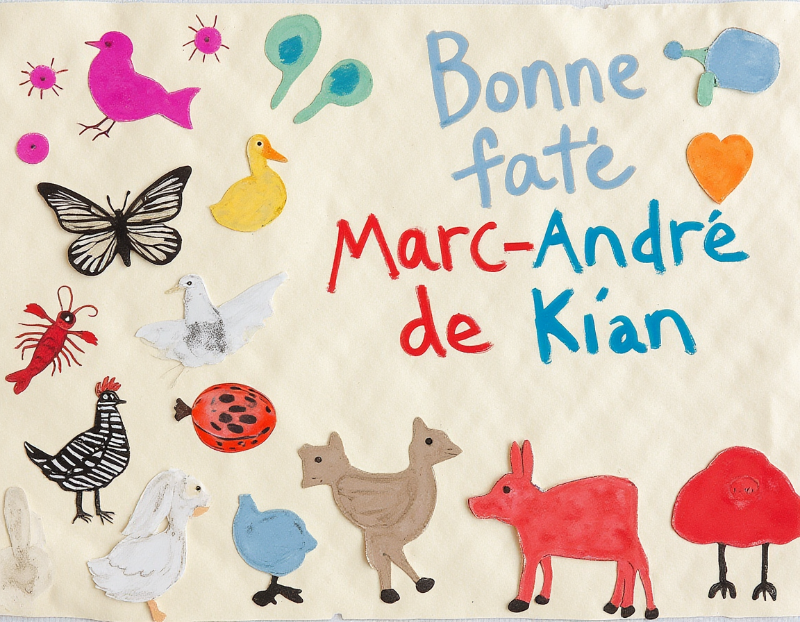 Bonne
fat'e
Marc-André
de Kían